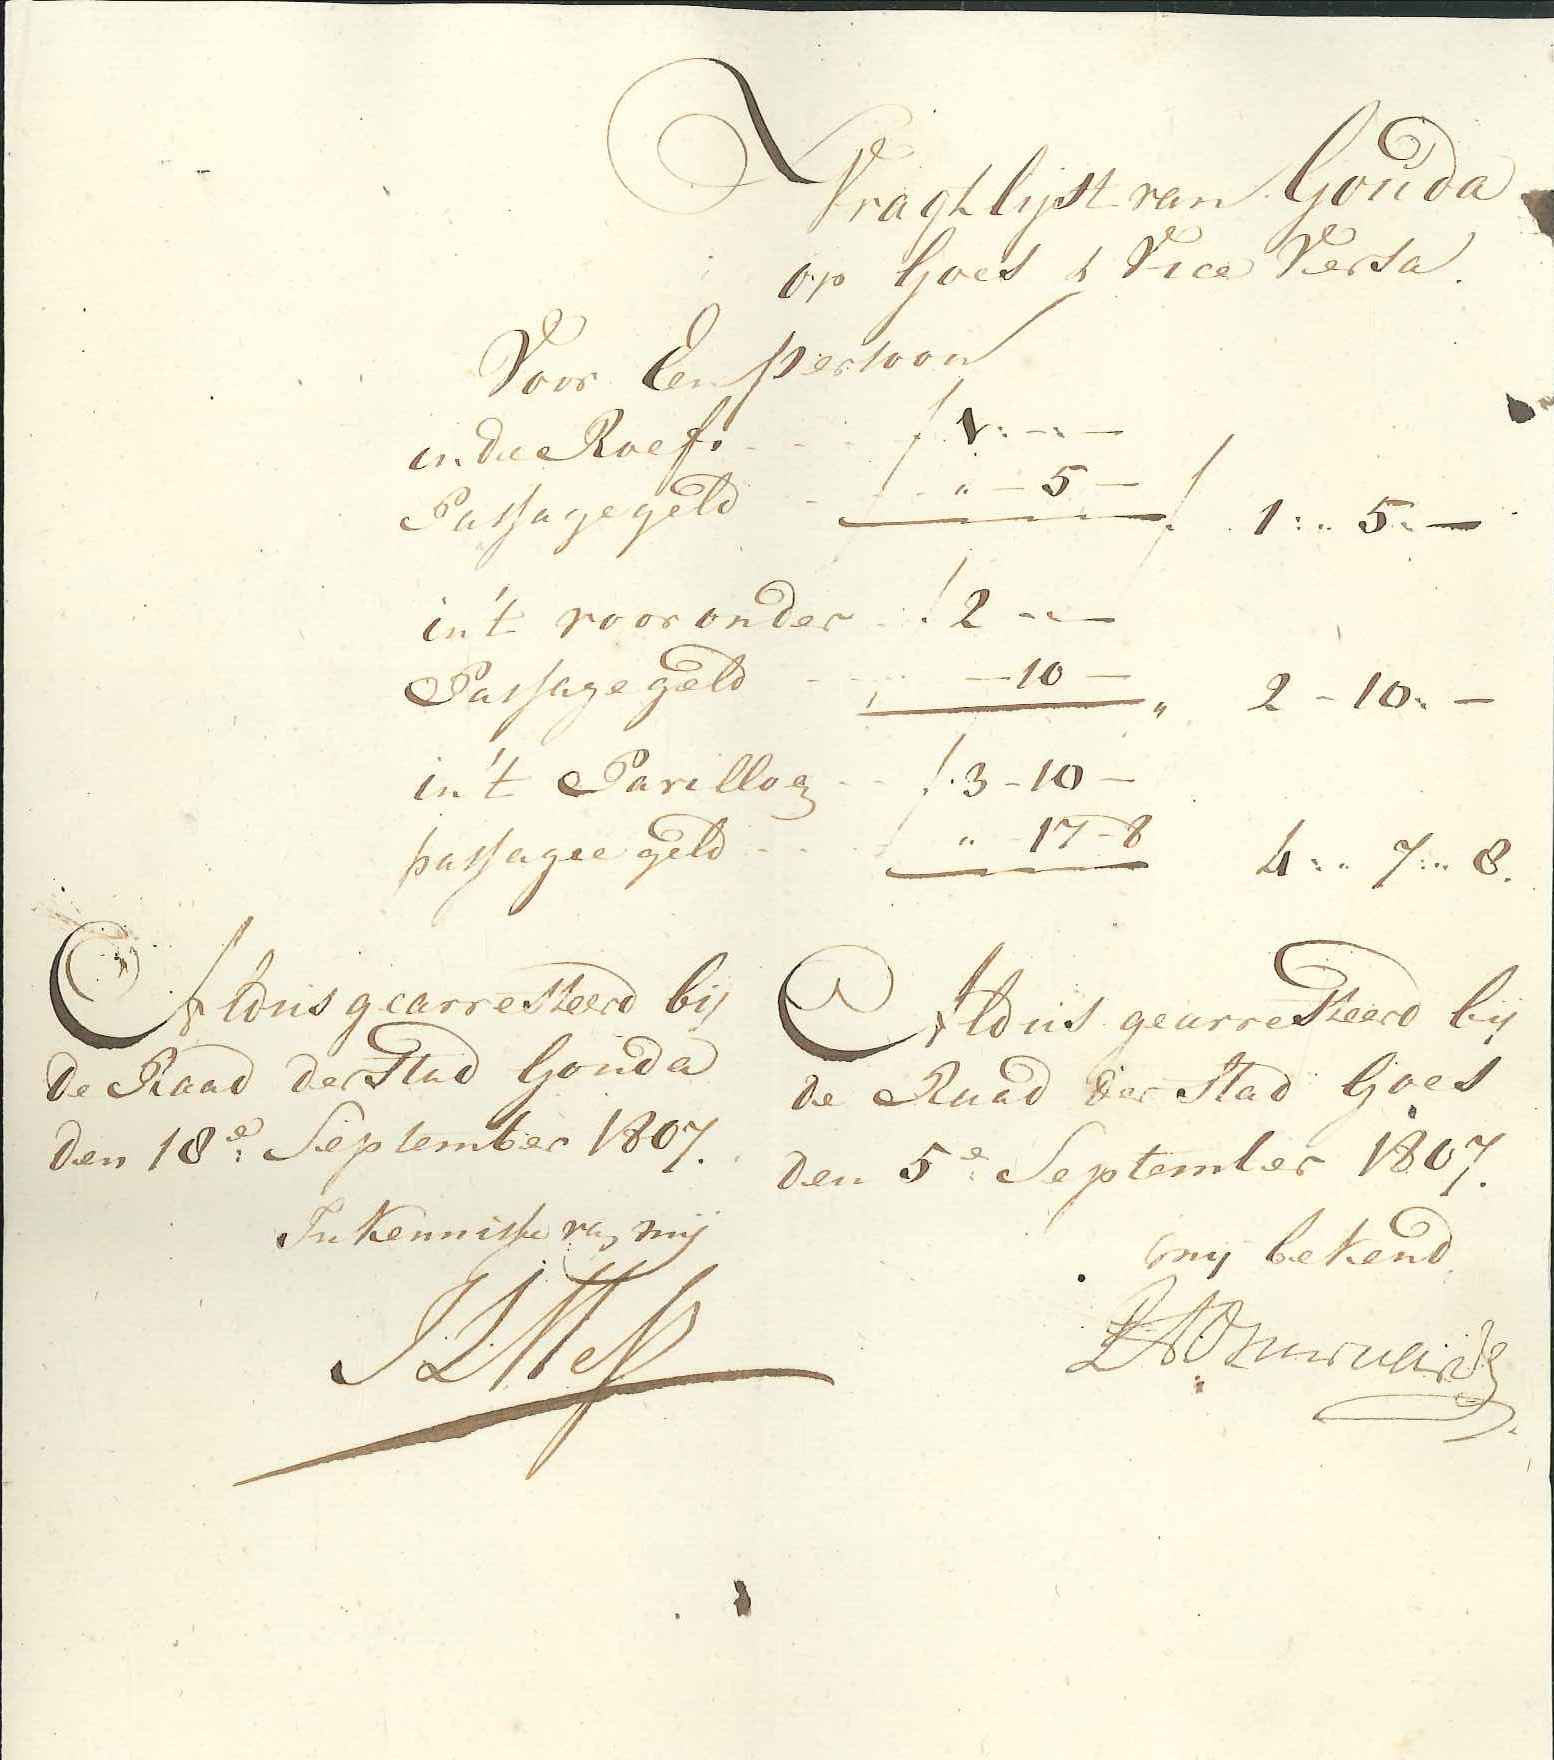 Vraghtlijst van Gouda
op Goes & Vice Versa.
Voor Een persoon
in de Roef. - - - ƒ 1:-:-
Passagegeld - - - " - 5 - ƒ 1:" 5:-
in't vooronder - ƒ 2 -"-
Passagegeld - - - - 10 - " 2 - 10:-
in't Pavilloen - - ƒ 3 - 10 -
passagie geld - - - " - 17 - 8 4:" 7:" 8.
Aldus gearresteerd bij
de Raad der Stad Gouda
den 18e: September 1807.
In Kennisse van mij
Aldus gearresteerd bij
de Raad der Stad Goes
den 5e: September 1807.
mij bekend